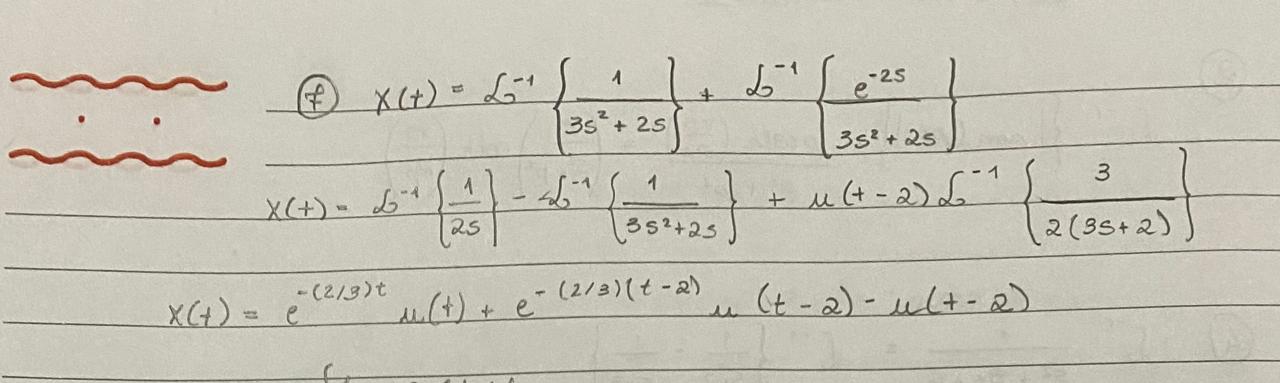 (f) x(t) = ℒ⁻¹ { 1 / (3s² + 2s) } + ℒ⁻¹ { e^(-2s) / (3s² + 2s) }
x(t) = ℒ⁻¹ { 1 / 2s } - ℒ⁻¹ { 1 / (3s² + 2s) } + u(t-2) ℒ⁻¹ { 3 / 2(3s+2) }
x(t) = e^(-(2/3)t) u(t) + e^(-(2/3)(t-2)) u(t-2) - u(t-2)